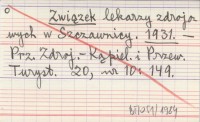 Związek lekarzy zdrojo
wych w Szczawnicy. 1931. —
Prz. Zdroj.-Kąpiel. i Przew.
Turyst. 20, nr 10: 149.